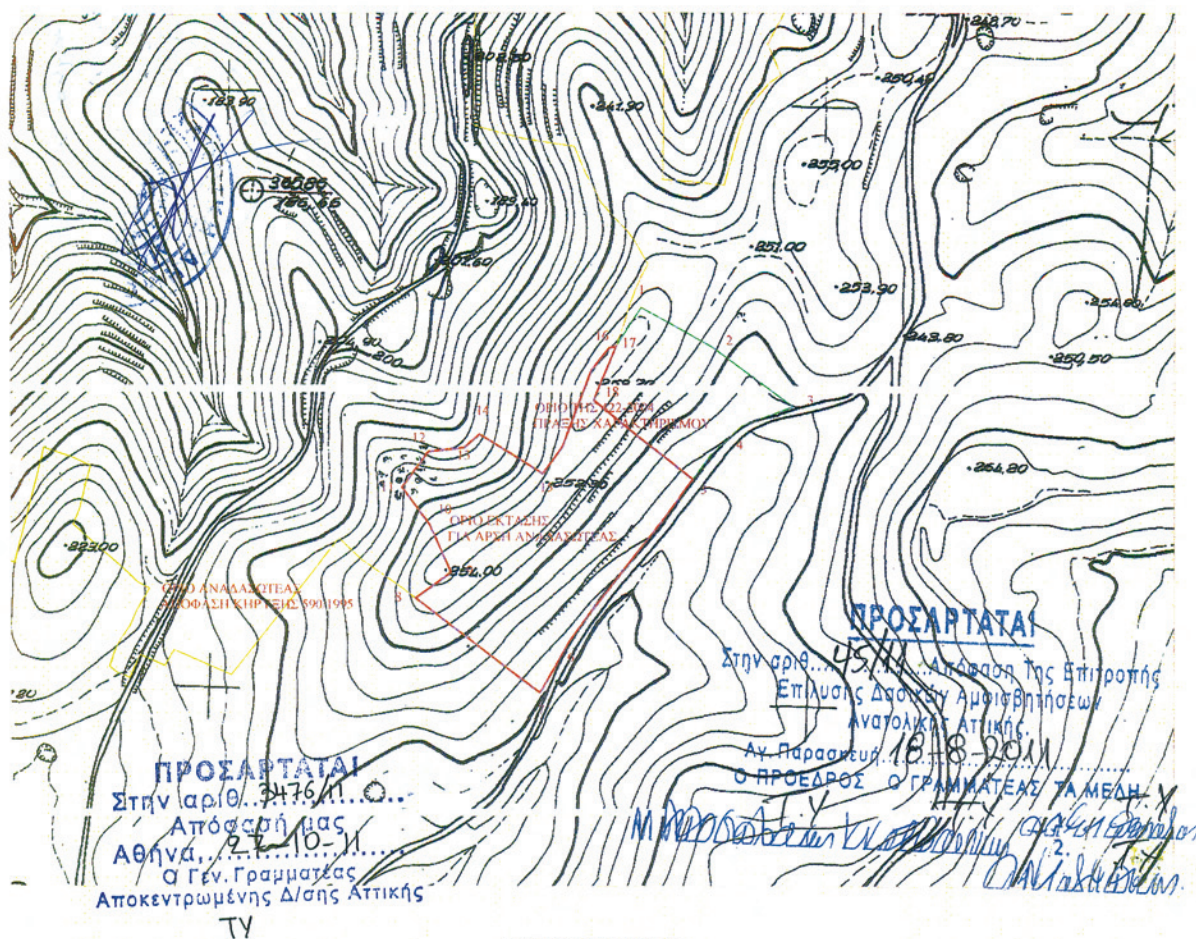 242,70
202,50
250,40
183,90
241,90
255,00
385,80
189,40
251,00
253,90
1
254,80
2
243,80
16
17
250,50
200
18
3
ΟΡΙΟ ΤΗΣ
ΠΡΑΞΗΣ ΧΑΡΑΚΤΗΡΙΣΜΟΥ
14
12
13
4
264,80
15
5
10
ΟΡΙΟ ΕΚΤΑΣΗΣ
ΓΙΑ ΑΡΣΗ ΑΝΑΔΑΣΩΤΕΑΣ
223,00
254,00
ΟΡΙΟ ΑΝΑΔΑΣΩΤΕΑΣ
ΑΠΟΦΑΣΗ ΚΗΡΥΞΗΣ 590/1995
8
ΠΡΟΣΑΡΤΑΤΑΙ
Στην αριθ...45/11...Απόφαση Της Επιτροπής
Επίλυσης Δασικών Αμφισβητήσεων
Ανατολικής Αττικής.
Αγ. Παρασκευή 18-8-2011
Ο ΠΡΟΕΔΡΟΣ Ο ΓΡΑΜΜΑΤΕΑΣ ΤΑ ΜΕΛΗ
Τ.Υ Τ.Υ Τ.Υ
2.
ΠΡΟΣΑΡΤΑΤΑΙ
Στην αριθ...3476/11...
Απόφασή μας
Αθήνα,...27-10-11...
Ο Γεν. Γραμματέας
Αποκεντρωμένης Δ/σης Αττικής
ΤΥ